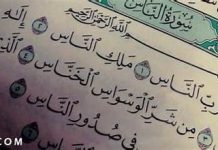 سُورَةُ النَّاسِ
بِسْمِ اللَّهِ الرَّحْمَٰنِ الرَّحِيمِ
النَّاسِ ١ مَلِكِ النَّاسِ ٢ إِلَٰهِ
٣ مِن شَرِّ الْوَسْوَاسِ الْخَنَّاسِ ٤
فِي صُدُورِ النَّاسِ ٥
.COM